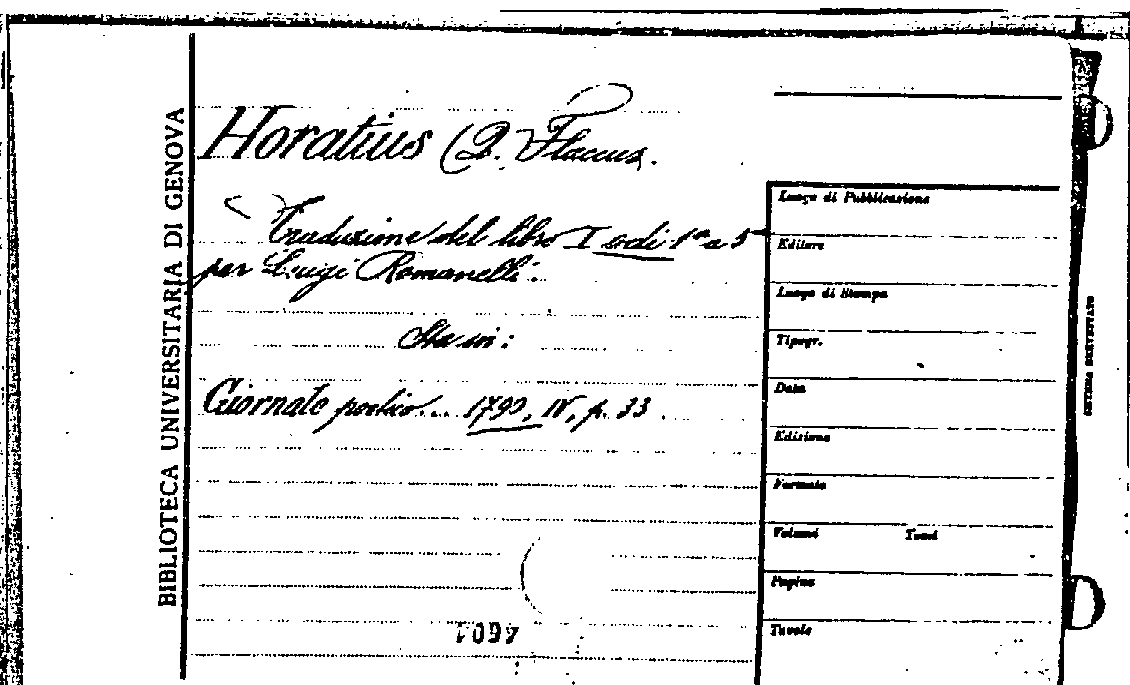 BIBLIOTECA UNIVERSITARIA DI GENOVA
Horatius (Q. Flaccus.
Traduzione del libro I odi 1ª a 5
per Luigi Romanelli.
Sta in:
Giornale poetico... 1790, IV, p. 33.
Luogo di Pubblicazione
Editore
Luogo di Stampa
Tipogr.
Data
Edizione
Formato
Volumi Tomi
Pagine
Tavole